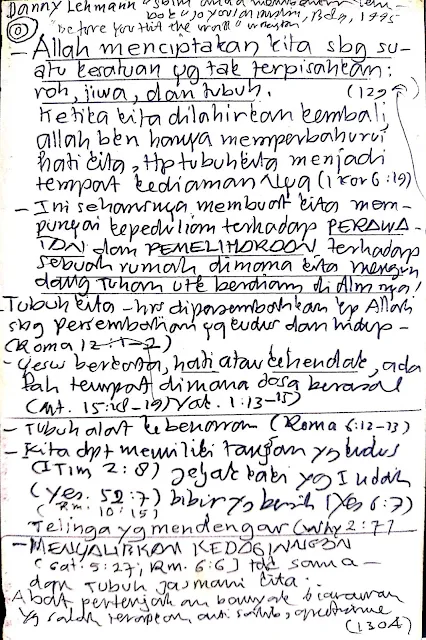 Danny Lehmann
bok" 1995
before you hit the wall"
0
- Allah menciptakan kita sbg su-
atu kesatuan yg tak terpisahkan:
roh, jiwa, dan tubuh. (129
Ketika kita dilahirkan kembali,
allah bkn hanya memperbaharui
hati kita, ttp tubuh kita menjadi
tempat kediaman Nya (1 Kor 6:19)
- Ini seharusnya membuat kita mem-
punyai kepedulian terhadap PERAWA-
TAN dan PEMELIHARAAN terhadap
sebuah rumah dimana kita mengun
dang Tuhan utk berdiam di dlmnya!
Tubuh kita - hrs dipersembahkan kp Allah
sbg persembahan yg kudus dan hidup -
(Roma 12:1-2)
- Yesus berkata, hati atau kehendak, ada
lah tempat dimana dosa berasal
(Mt. 15:18-19) Yak. 1:13-15)
- Tubuh alat kebenaran (Roma 6:12-13)
- Kita dpt memiliki tangan yg kudus
(I Tim 2:8) jejak kaki yg indah
(Yes. 52:7) bibir yg bersih (Yes 6:7)
(Rm. 10:15)
Telinga yg mendengar (Why 2:7)
- MENYALIBKAN KEDAGINGAN
(Gal. 5:27, Rm. 6:6) tdk sama -
dgn Tubuh jasmani kita.
Abad pertengahan banyak biarawan
yg salah terapkan arti salib,
(130A)